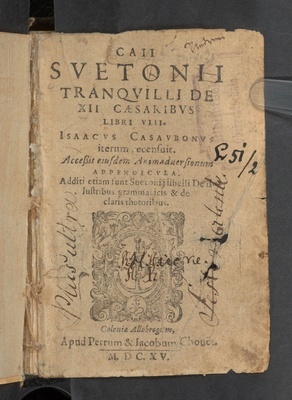 CAII
SVETONII
TRANQVILLI DE
XII CÆSARIBVS
LIBRI VIII.
ISAACVS CASAVBONVS
iterum recensuit.
Accessit eiusdem Animaduersionum
APPENDICVLA.
Additi etiam sunt Suetonij libelli De il-
lustribus grammaticis & de
claris rhetoribus.
Plus ultra
Coloniæ Allobrogum,
Apud Petrum & Iacobum Chouet.
M. DC. XV.